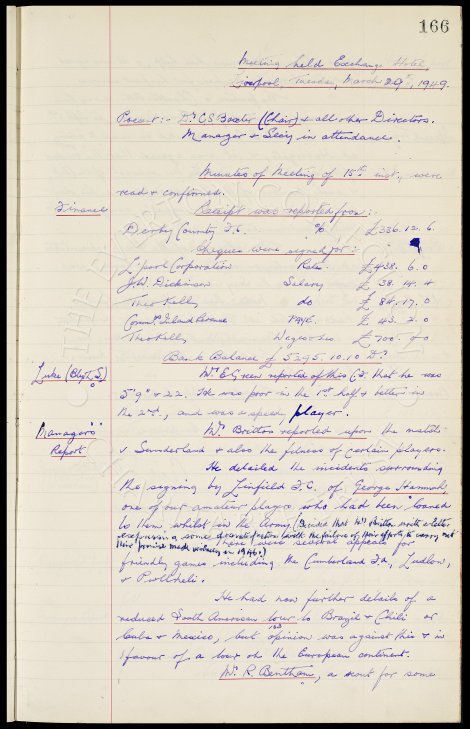 166
Meeting held Exchange Hotel,
Liverpool, Tuesday, March 29th, 1949.
Present:- Dr CS Baxter (Chair) & all other Directors.
Manager & Secy in attendance.
Minutes of Meeting of 15th inst., were
read & confirmed.
Finance
Receipt was reported from:
Derby County F.C. % £336.12.6.
Cheques were signed for:
L'pool Corporation Rates £438.6.0
J.W. Dickinson Salary £38.14.4
Theo Kelly do £84.17.0
Commr Inland Revenue PAYE. £43.2.0
Theo Kelly Wages &c £700.
Bank Balance of 5295.10.10 Dr
Luke (Blyth S)
Mr E Green reported of this CF. that he was
5' 9" & 22. He was poor in the 1st half & better in
the 2nd., and was a speedy player.
Manager's
Report
Mr Britton reported upon the match
v Sunderland & also the fitness of certain players.
He detailed the incidents surrounding
the signing by Linfield F.C. of George Hannah,
one of our amateur players who had been "loaned
to them, whilst in the Army. (Decided that Mr Britton wrote a letter
expressing some dissatisfaction with the failure of their efforts to carry out
their promise made in 1946.)
There were several appeals for
friendly games including the Cumberland F.A., Ludlow,
& Pwllheli.
He had now further details of a
reduced South American tour to Brazil & Chili or
Cuba & Mexico, but opinion was against this & in
favour of a tour on the European continent.
Mr. R. Bentham, a scout for some